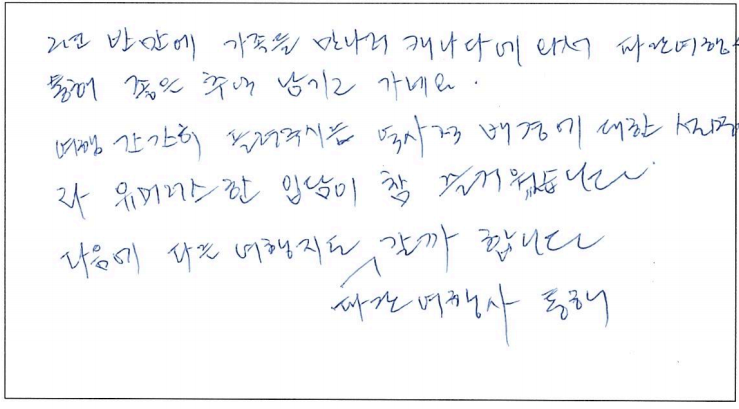 2년 반만에 가족을 만나러 캐나다에 와서 파란여행사
통해 좋은 추억 남기고 가네요.
여행 간간히 들려주시는 역사적 배경에 대한 설명
과 유머러스한 입담이 참 즐거웠습니다.
다음에 다른 여행지도 갈까 합니다
파란여행사 통해